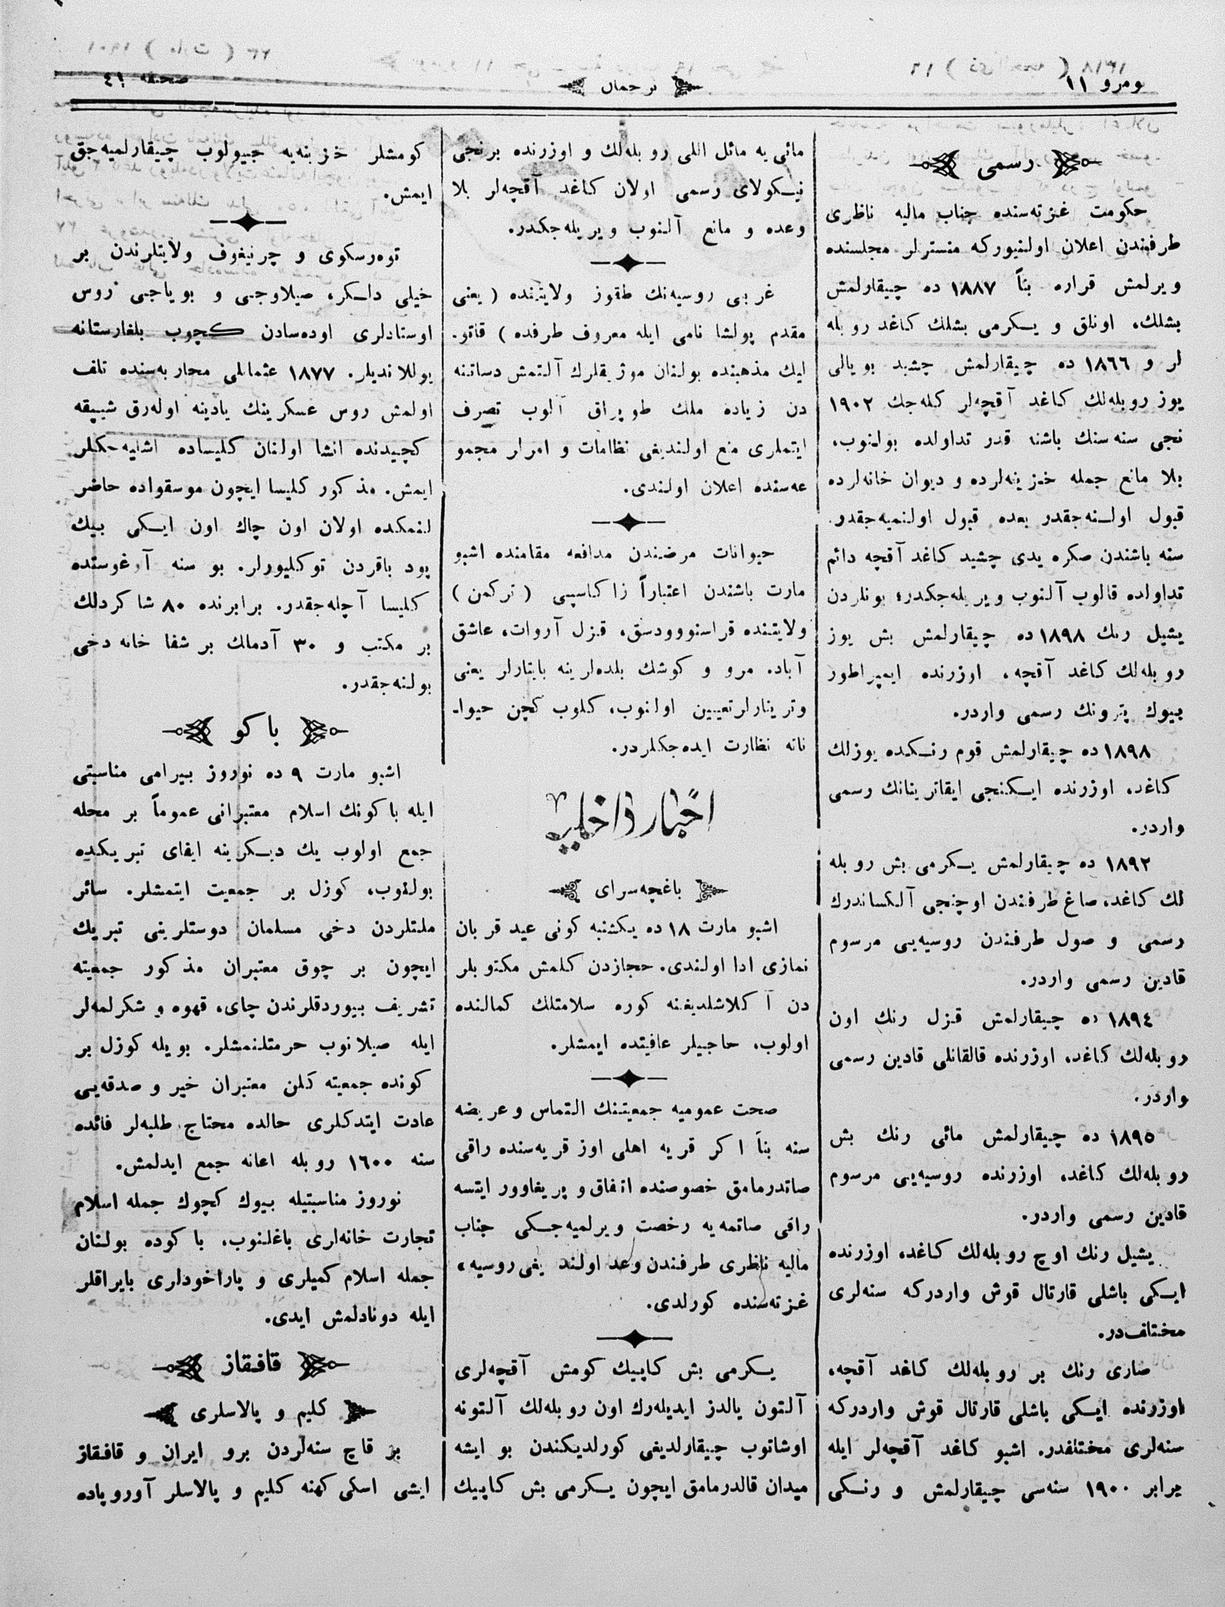 نومرو ١١
ترجمان
صحیفه ٤١
رسمی
حكومت غزته‌سنده جناب مالیه ناظری
طرفندن اعلان اولنیوركه منسترلر مجلسنده
ویرلمش قراره بناً ١٨٨٧ ده چیقارلمش
بشلك، اونلق و یكرمی بشلك كاغد روبله
لر و ١٨٦٦ ده چیقارلمش چشید بویالی
یوز روبله‌لك كاغد آقچه‌لر كله‌جك ١٩٠٢
نجی سنه‌سنك باشنه قدر تداولده بولنوب،
بلا مانع جمله خزینه‌لرده و دیوان خانه‌لرده
قبول اولنه‌جقدر بعده قبول اولنمیه‌جقدر.
سنه باشندن صكره یدی چشید كاغد آقچه دائم
تداولده قالوب آلنوب ویریله‌جكدر؛ بونلردن
یشیل رنك ١٨٩٨ ده چیقارلمش بش یوز
روبله‌لك كاغد آقچه، اوزرنده ایمپراطور
بیوك پترونك رسمی واردر.
١٨٩٨ ده چیقارلمش قوم رنكده یوزلك
كاغد، اوزرنده ایكنجی ایقاترینانك رسمی
واردر.
١٨٩٢ ده چیقارلمش یكرمی بش روبله
لك كاغد، صاغ طرفندن اوچنجی آلكساندرك
رسمی و صول طرفندن روسیه‌یی مرسوم
قادین رسمی واردر.
١٨٩٤ ده چیقارلمش قزل رنك اون
روبله‌لك كاغد، اوزرنده قالقانلی قادین رسمی
واردر.
١٨٩٥ ده چیقارلمش مائی رنك بش
روبله‌لك كاغد، اوزرنده روسیه‌یی مرسوم
قادین رسمی واردر.
یشیل رنك اوچ روبله‌لك كاغد، اوزرنده
ایكی باشلی قارتال قوش واردركه سنه‌لری
مختلف‌در.
صاری رنك بر روبله‌لك كاغد آقچه،
اوزرنده ایكی باشلی قارتال قوش واردركه
سنه‌لری مختلفدر. اشبو كاغد آقچه‌لر ایله
برابر ١٩٠٠ سنه‌سی چیقارلمش و رنكی
مائی یه مائل اللی روبله‌لك و اوزرنده برنجی
نیكولای رسمی اولان كاغد آقچه‌لر بلا
وعده و مانع آلنوب ویریله‌جكدر.
غربی روسیه‌نك طقوز ولایتنده (یعنی
مقدم پولشا نامی ایله معروف طرفده) قاتو.
لیك مذهبنده بولنان موژیقلرك آلتمش دساتنه
دن زیاده ملك طوپراق آلوب تصرف
ایتملری منع اولندیغی نظامات و امرلر مجمو
عه‌سنده اعلان اولندی.
حیوانات مرضندن مدافعه مقامنده اشبو
مارت باشندن اعتباراً زاكاسپی (تركمن)
ولایتنده قراسنوودسق، قزل آروات، عاشق
آباد، مرو و كوشك بلده‌لرینه بایتارلر یعنی
وترینارلر تعیین اولنوب، كلوب كچن حیوا.
ناته نظارت ایده‌جكلردر.
اخبار داخلیه
باغچه‌سرای
اشبو مارت ١٨ ده یكشنبه كونی عید قربان
نمازی ادا اولندی. حجازدن كلمش مكتوبلر
دن آكلاشلدیغنه كوره سلامتلك كمالنده
اولوب، حاجیلر عافیتده ایمشلر.
صحت عمومیه جمعیتنك التماس و عریضه
سنه بناً اكر قریه اهلی اوز قریه‌سنده راقی
صاتدرمامق خصوصنده اتفاق و پریغاوور ایتسه
راقی صاتمه‌یه رخصت ویرلمیه‌جكی جناب
مالیه ناظری طرفندن وعد اولندیغی روسیه،
غزته‌سنده كورلدی.
یكرمی بش كاپیك كومش آقچه‌لری
آلتون یالدز ایدیله‌رك اون روبله‌لك آلتونه
اوشاتوب چیقارلدیغی كورلدیكندن بو ایشه
میدان قالدرمامق ایچون یكرمی بش كاپیك
كومشلر خزینه‌یه جیولوب چیقارلمیه‌جق
ایمش.
توه‌رسكوی و چرنیغوف ولایتلرندن بر
خیلی دلكر، صیلاوجی و بویاجی روس
اوستادلری اوده‌سادن كچوب بلغارستانه
یوللاندیلر. ١٨٧٧ عثمانلی محاربه‌سنده تلف
اولمش روس عسكرینك یادینه اوله‌رق شیپقه
كچیدنده انشا اولنان كلیساده اشلیه‌جكلر
ایمش. مذكور كلیسا ایچون موسقواده حاضر
لنمكده اولان اون چاك اون ایكی بیك
پود باقردن توكلیورلر. بو سنه آوغوستده
كلیسا آچله‌جقدر. برابرنده ٨٠ شاكردلك
بر مكتب و ٣٠ آدملك بر شفا خانه دخی
بولنه‌جقدر.
باكو
اشبو مارت ٩ ده نوروز بیرامی مناسبتی
ایله باكونك اسلام معتبرانی عموماً بر محله
جمع اولوب یك دیكرینه ایفای تبریكیده
بولنوب، كوزل بر جمعیت ایتمشلر. سائر
ملتلردن دخی مسلمان دوستلرینی تبریك
ایچون بر چوق معتبران مذكور جمعیته
تشریف بیوردقلرندن چای، قهوه و شكرلمه‌لر
ایله صیلانوب حرمتلنمشلر. بویله كوزل بر
كونده جمعیته كلن معتبران خیر و صدقه‌یی
عادت ایتدكلری حالده محتاج طلبه‌لر فائده
سنه ١٦٠٠ روبله اعانه جمع ایدلمش.
نوروز مناسبتیله بیوك كچوك جمله اسلام
تجارت خانه‌لری باغلنوب، باكوده بولنان
جمله اسلام كمیلری و پاراخودلری بایراقلر
ایله دونادلمش ایدی.
قافقاز
كلیم و پالاسلری
بر قاچ سنه‌لردن برو ایران و قافقاز
ایشی اسكی كهنه كلیم و پالاسلر آوروپاده